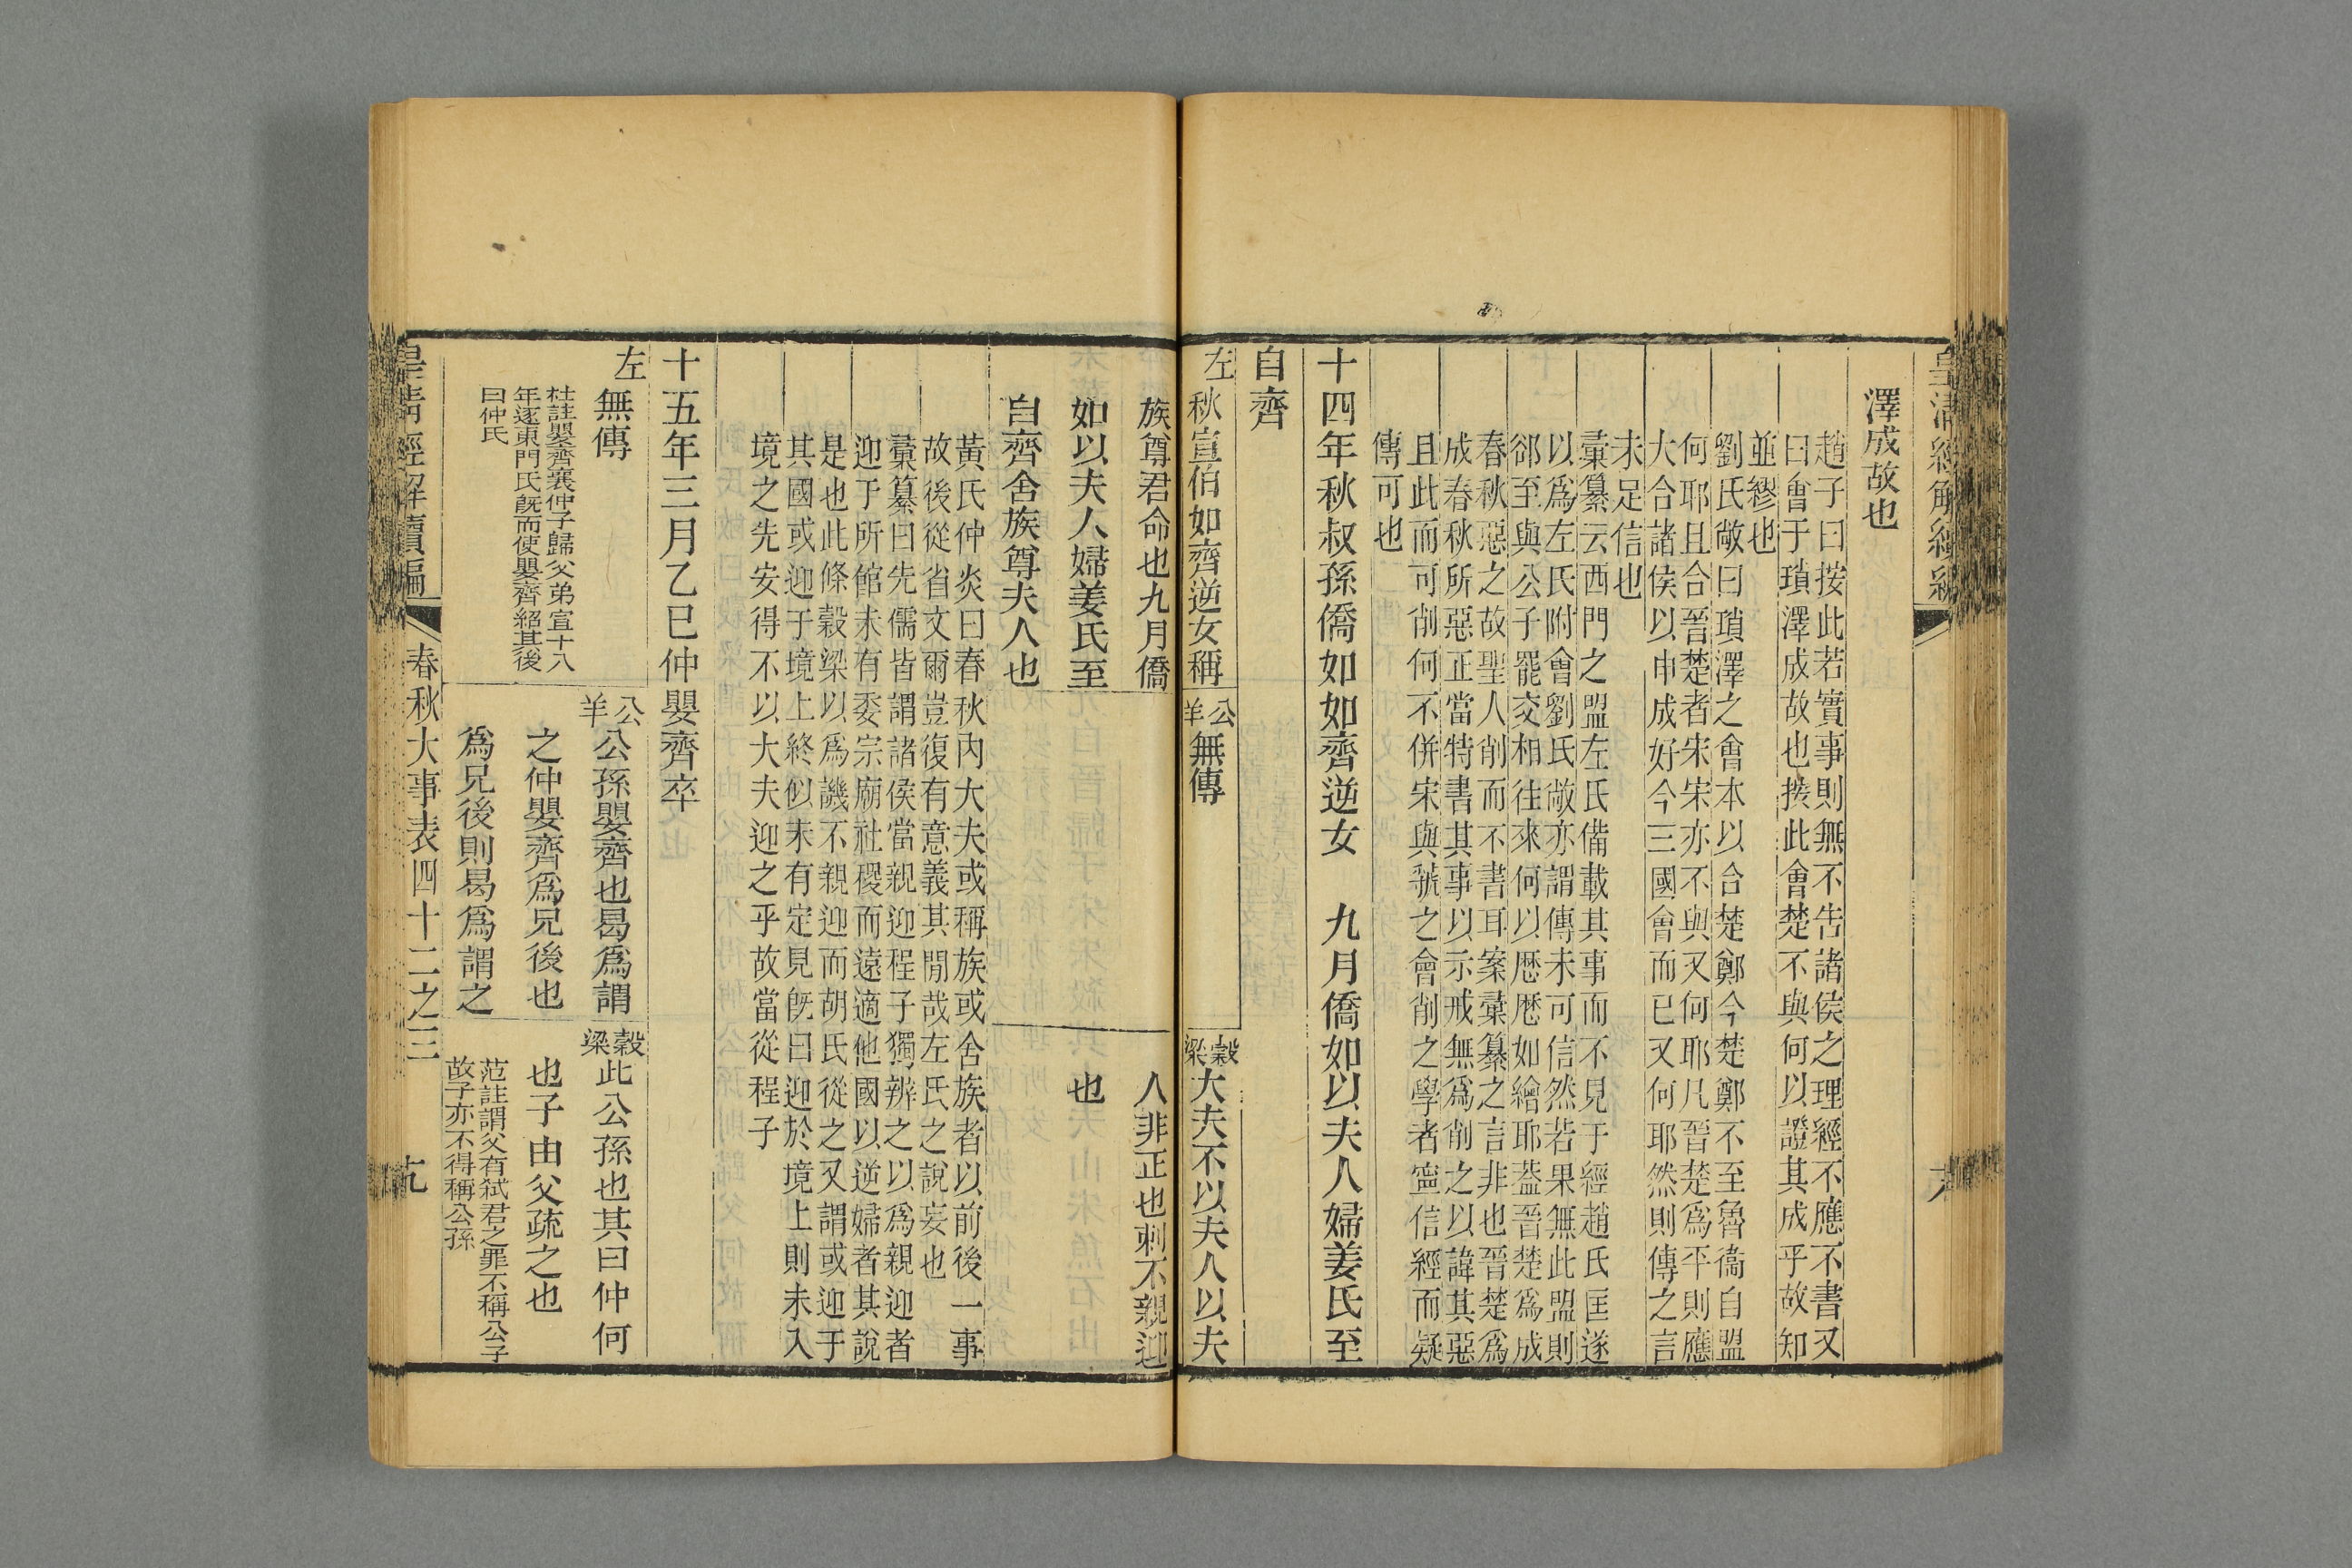 澤成故也
趙子曰按此若實事則無不告諸侯之理經不應不書又
曰會于瑣澤成故也據此會楚不與何以證其成乎故知
並繆也
劉氏敞曰瑣澤之會本以合楚鄭今楚鄭不至魯衞自盟
何耶且合晉楚者宋宋亦不與又何耶凡晉楚爲平則應
大合諸侯以申成好今三國會而已又何耶然則傳之言
未足信也
彙纂云西門之盟左氏備載其事而不見于經趙氏匡遂
以爲左氏附會劉氏敞亦謂傳未可信然若果無此盟則
郤至與公子罷交相往來何以歷歷如繪耶葢晉楚爲成
春秋惡之故聖人削而不書耳案彙纂之言非也晉楚爲
成春秋所惡正當特書其事以示戒無爲削之以諱其惡
且此而可削何不併宋與虢之會削之學者寍信經而疑
傳可也
十四年秋叔孫僑如如齊逆女　九月僑如以夫人婦姜氏至
自齊
左秋宣伯如齊逆女稱
公羊無傳
穀梁大夫不以夫人以夫
族尊君命也九月僑
如以夫人婦姜氏至
自齊舍族尊夫人也
人非正也刺不親迎
也
黃氏仲炎曰春秋內大夫或稱族或舍族者以前後一事
故後從省文爾豈復有意義其閒哉左氏之說妄也
彙纂曰先儒皆謂諸侯當親迎程子獨辨之以爲親迎者
迎于所館未有委宗廟社稷而遠適他國以逆婦者其說
是也此條穀梁以爲譏不親迎而胡氏從之又謂或迎于
其國或迎于境上終似未有定見旣曰迎於境上則未入
境之先安得不以大夫迎之乎故當從程子
十五年三月乙巳仲嬰齊卒
左無傳
杜註嬰齊襄仲子歸父弟宣十八
年逐東門氏旣而使嬰齊紹其後
曰仲氏
公羊公孫嬰齊也曷爲謂
之仲嬰齊爲兄後也
爲兄後則曷爲謂之
穀梁此公孫也其曰仲何
也子由父疏之也
范註謂父有弒君之罪不稱公子
故子亦不得稱公孫
皇清經解續編　春秋大事表四十二之三